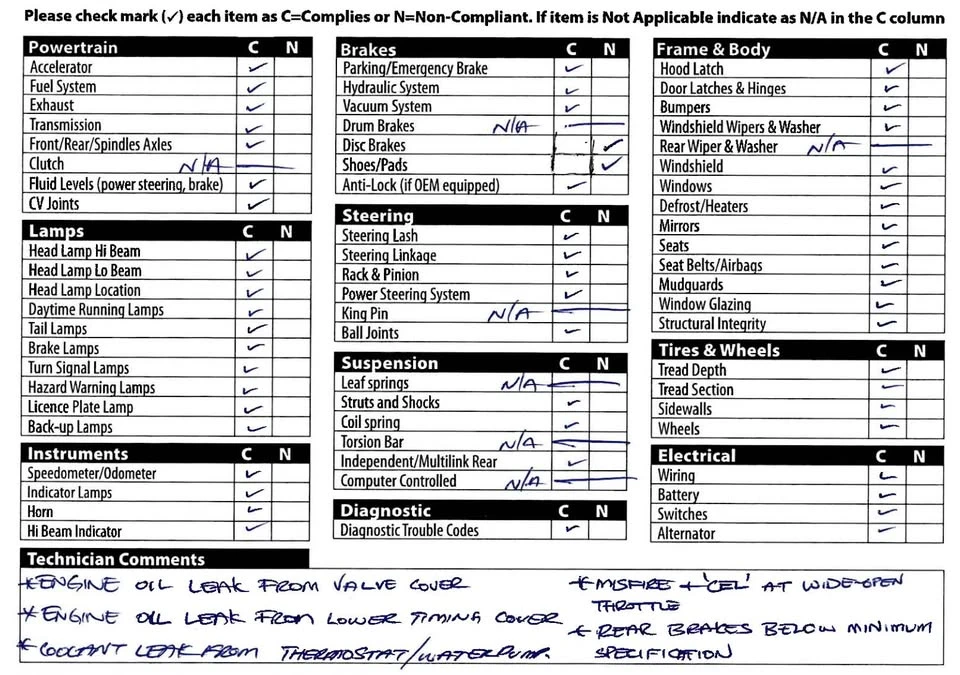 Please check mark (✓) each item as C=Complies or N=Non-Compliant. If item is Not Applicable indicate as N/A in the C column
Powertrain C N
Accelerator ✓
Fuel System ✓
Exhaust ✓
Transmission ✓
Front/Rear/Spindles Axles ✓
Clutch N/A
Fluid Levels (power steering, brake) ✓
CV Joints ✓
Lamps C N
Head Lamp Hi Beam ✓
Head Lamp Lo Beam ✓
Head Lamp Location ✓
Daytime Running Lamps ✓
Tail Lamps ✓
Brake Lamps ✓
Turn Signal Lamps ✓
Hazard Warning Lamps ✓
Licence Plate Lamp ✓
Back-up Lamps ✓
Instruments C N
Speedometer/Odometer ✓
Indicator Lamps ✓
Horn ✓
Hi Beam Indicator ✓
Brakes C N
Parking/Emergency Brake ✓
Hydraulic System ✓
Vacuum System ✓
Drum Brakes N/A
Disc Brakes ✓
Shoes/Pads ✓
Anti-Lock (if OEM equipped) ✓
Steering C N
Steering Lash ✓
Steering Linkage ✓
Rack & Pinion ✓
Power Steering System ✓
King Pin N/A
Ball Joints ✓
Suspension C N
Leaf springs N/A
Struts and Shocks ✓
Coil spring ✓
Torsion Bar N/A
Independent/Multilink Rear ✓
Computer Controlled N/A
Diagnostic C N
Diagnostic Trouble Codes ✓
Frame & Body C N
Hood Latch ✓
Door Latches & Hinges ✓
Bumpers ✓
Windshield Wipers & Washer ✓
Rear Wiper & Washer N/A
Windshield ✓
Windows ✓
Defrost/Heaters ✓
Mirrors ✓
Seats ✓
Seat Belts/Airbags ✓
Mudguards ✓
Window Glazing ✓
Structural Integrity ✓
Tires & Wheels C N
Tread Depth ✓
Tread Section ✓
Sidewalls ✓
Wheels ✓
Electrical C N
Wiring ✓
Battery ✓
Switches ✓
Alternator ✓
Technician Comments
*ENGINE OIL LEAK FROM VALVE COVER
*ENGINE OIL LEAK FROM LOWER TIMING COVER
*COOLANT LEAK FROM THERMOSTAT/WATERPUMP.
*MISFIRE + 'CEL' AT WIDE-OPEN
THROTTLE
*REAR BRAKES BELOW MINIMUM
SPECIFICATION